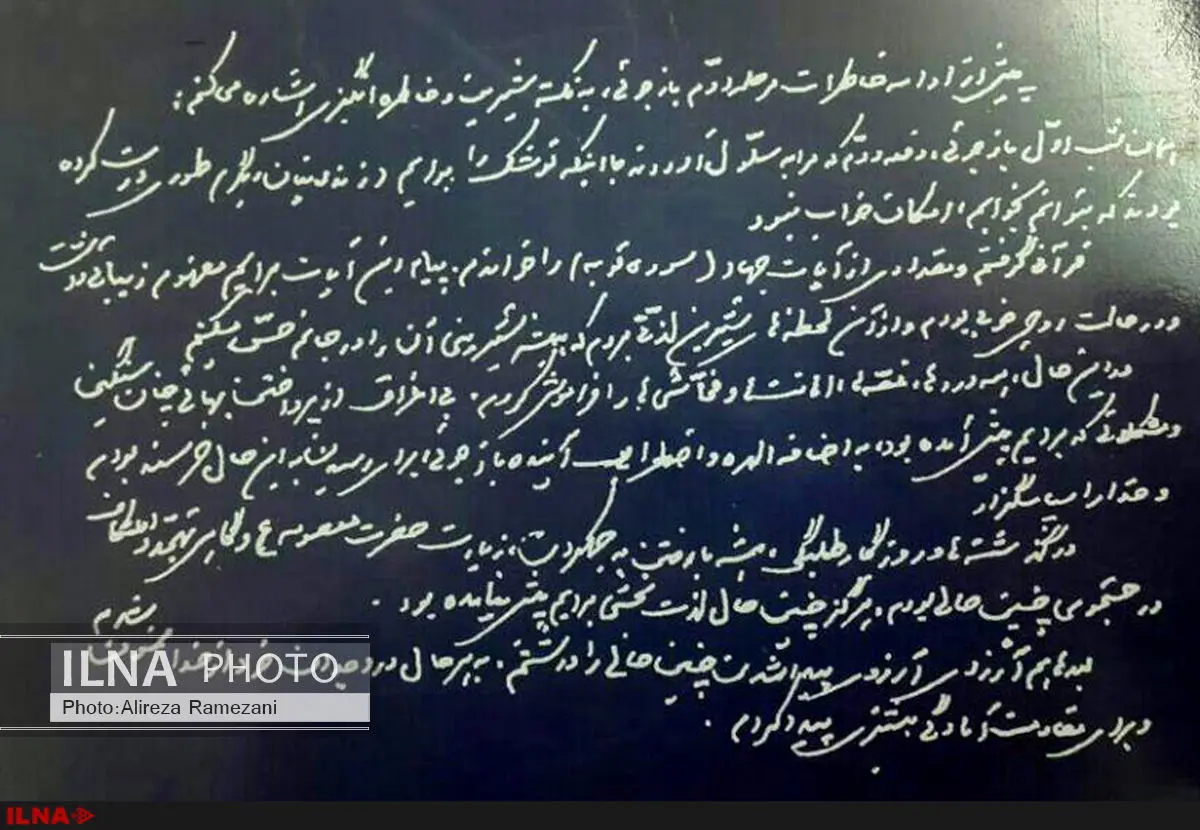 پیش از ادامه خاطرات مرحله دوم بازجوئی، به نکته شیرین و خاطره انگیزی اشاره می‌کنم:
همان شب اوّل بازجوئی، دفعه دوّم که مرا به سلّول آوردند با اینکه توشک را برایم در زندان بان، طوری درست کرده
بودند که بتوانم بخوابم، امکان خواب نبود
قرآنی گرفتم و مقداری از آیات جهاد (سوره توبه) را خواندم. پیام این آیات برایم مفهوم زیبائی
و در حالت روحی خوبی بودم و از آن لحظه‌ها شیرین لذتی بردم که همیشه شیرینی آن را در جانم حسّ میکنم
در این حال، همه دردها، غصه‌ها، اهانت‌ها و فحّاشی‌ها را فراموش کردم. بی اغراق از پرداختن بهائی چنان سنگین
و مشکلاتی که برایم پیش آمده بود، به اضافه دلهره و اضطراب آینده بازجوئی، برای رسیدن به این حال خرسند بودم
و خدا را سپاسگزار
در گذشته‌ها در روزگار طلبگی، همیشه با رفتن به جمکران، زیارت حضرت معصومه ع و گاهی تهجد و اعتکاف
در جستجوی چنین حالی بودم، هرگز چنین حال لذت بخشی برایم پیش نیامده بود.
بعدها هم آرزوی آرزوی پیدا شدن چنین حالی را داشتم. به هر حال در وجودم از خدا شدم
و برای مقاومت آمادگی بیشتری پیدا کردم.
ILNA PHOTO
Photo:Alireza Ramezani
ILNA